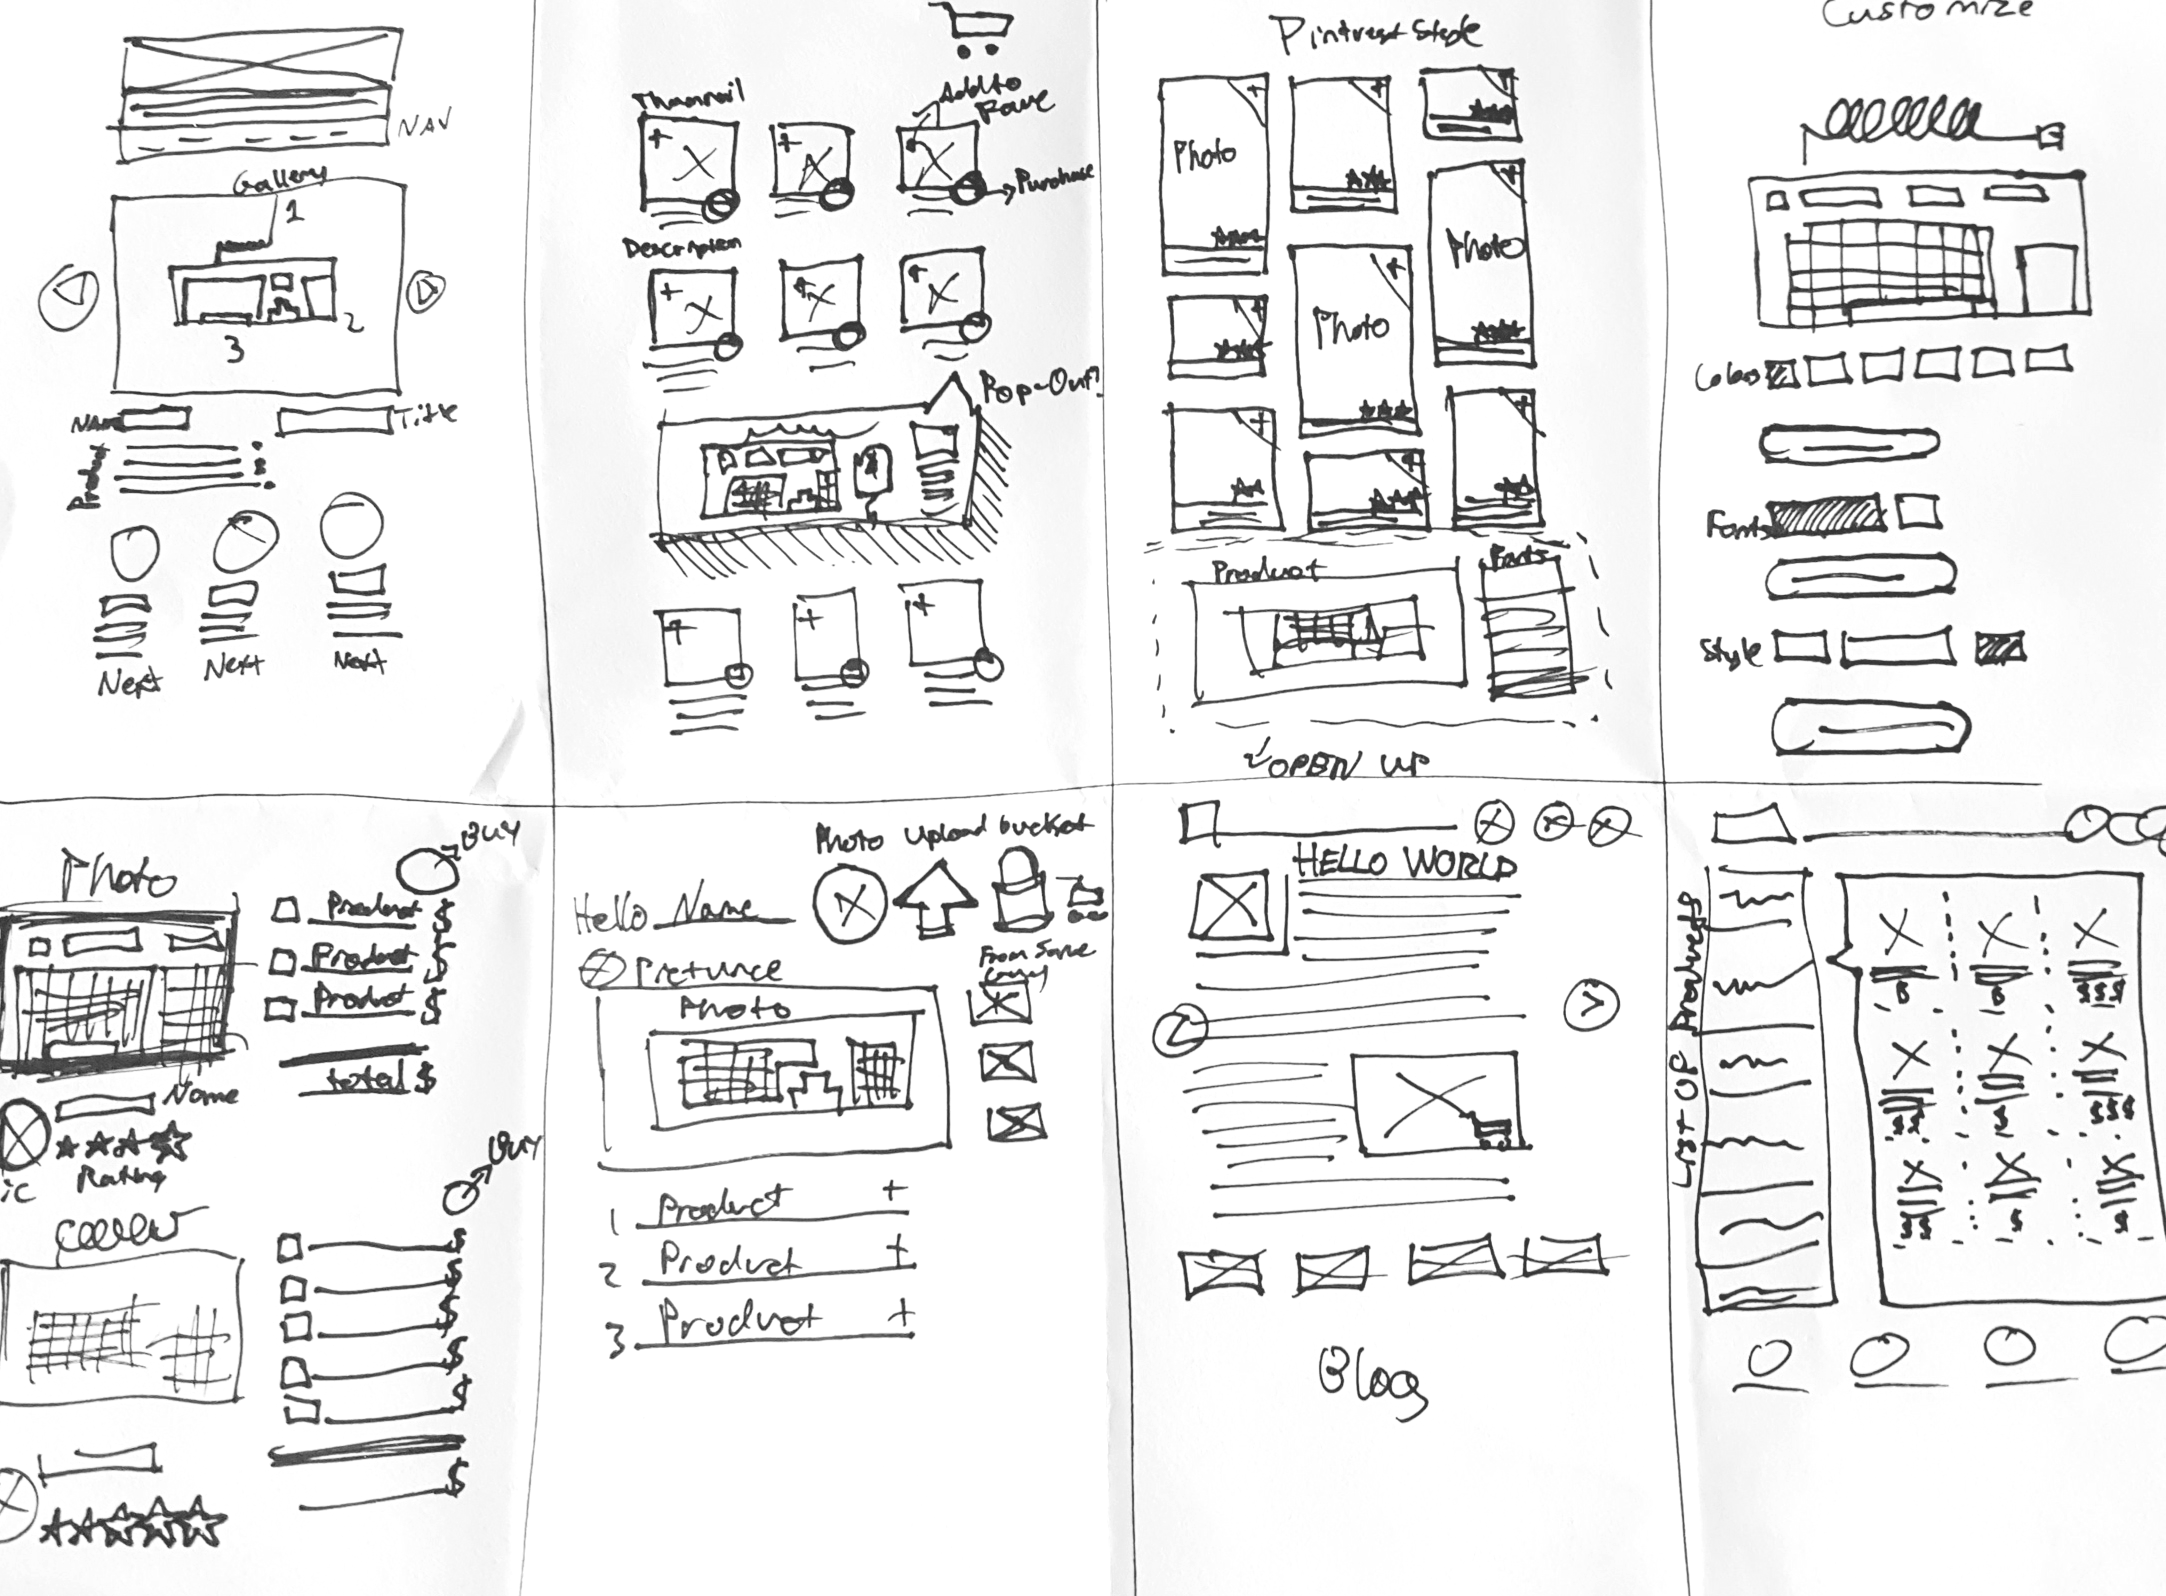 NAV
Gallery
1
2
3
Name
Title
Product
Next
Next
Next
Thamnail
Add to
Fave
Purchase
Description
Pop-Out?
Pintrest Style
Photo
Photo
Photo
Product
Parts
OPEN UP
Customize
Colors
Fonts
Style
Photo
BUY
Product $
Product $
Product $
total $
Name
Rating
BUY
$
$
$
$
$
$
Photo Upload bucket
Hello Name
From Same
Photo
1 Product +
2 Product +
3 Product +
HELLO WORLD
Blog
List OF Products
$ $ $$$
$$ $ $$$
$$ $ $